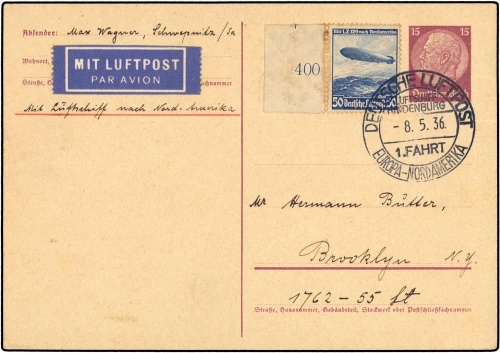 Absender: Max Wagner, Schwepnitz/Sa
Wohnort,
MIT LUFTPOST
PAR AVION
Straße, H
schlußnummer
Mit Luftschiff nach Nord-Amerika
400
Mit L.Z. 129 nach Nordamerika
50 Deutsche Luftpost 50
15 15
DEUTSCHE LUFTPOST
LUFTSCHIFF
HINDENBURG
- 8. 5. 36.
1. FAHRT
EUROPA-NORDAMERIKA
Mr Hermann Bütter,
Brooklyn N. Y.
1762 – 55 st
Straße, Hausnummer, Gebäudeteil, Stockwerk oder Postschließfachnummer